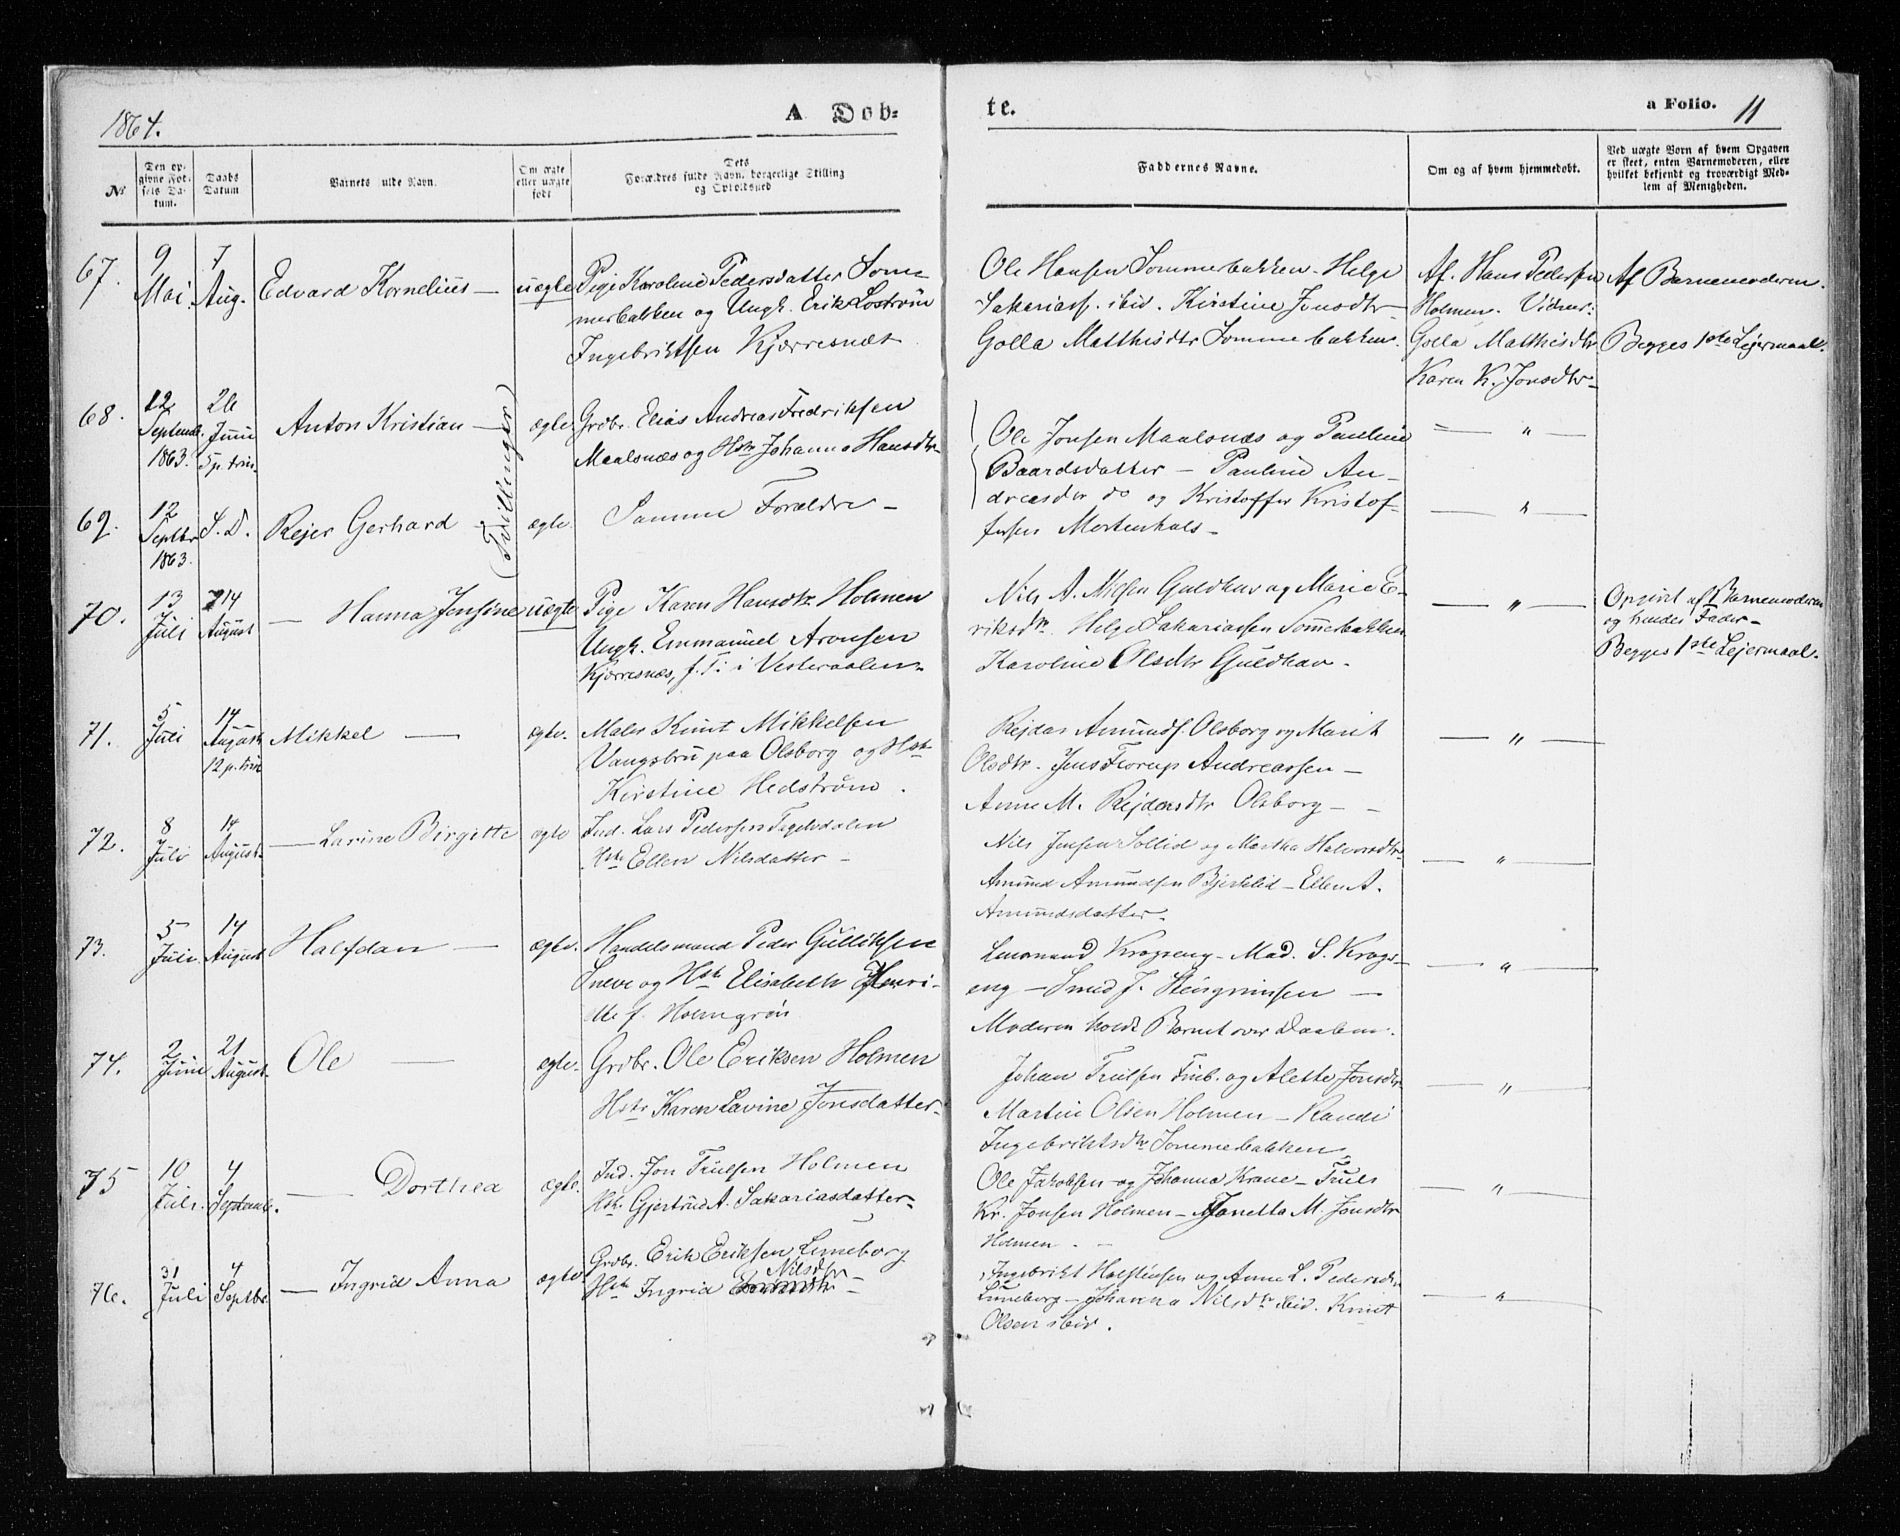 1864.
A Dob-
te.
a Folio. 11
No
Den op-
givne Fød-
sels Da-
tum.
Daabs
Datum
Barnets fulde Navn.
Om ægte
eller uægte
født
Dets
Forældres fulde Navn, borgerlige Stilling
og Opholdssted
Faddernes Navne.
Om og af hvem hjemmedøbt.
Ved uægte Børn af hvem Opgaven
er skeet, enten Barnemoderen, eller
hvilket bekjendt og troværdigt Med-
lem af Menigheden.
67.
9
Mai
7
Aug.
Edvard Kornelius —
uægte
Pige Karoline Pedersdatter Som-
merbakken og Ungk. Erik Lostrøm
Ingebriktsen Kjærresnæs
Ole Hansen Sommerbakken. Helge
Sakariass. ibid. Kirstine Jensdtr
Golla Matthisdtr Sommerbakken.
Af. Hans Pedersen
Holmen. Vidner:
Golla Matthisdtr
Karen K. Jonsdtr—
Af Barnemoderen.
Begges 1ste Lejermaal.
68.
12
Septembr.
1863.
26
Juni
5 p. trin.
Anton Kristian —
(Tvillinger)
ægte
Grdbr. Elias Andreas Fredriksen
Maalsnæs og Hstr Johanna Hansdtr
Ole Jonsen Maalsnæs og Pauline
Baardsdatter — Pauline An-
dreasdtr do og Kristoffer Kristof-
fersen Mortenhals —
— " —
69.
12
Septbr
1863.
S. D.
Rejer Gerhard
ægte.
Samme Forældre —
— " —
70.
13
Juli
14
August
— Hanna Jensine
uægte
Pige Karen Hansdtr Holmen
Ungk. Emmanuel Aronsen
Kjærresnæs, f. T. i Vesteraalen—
Nils A. Nilsen Guldhav og Marie E-
riksdtr. Helge Sakariassen Sommerbakken
Karoline Olsdtr Guldhav.
— " —
Opgivet af Barnemoderen
og hendes Fader—
Begges 1ste Lejermaal.
71.
5
Juli
14
August
12 p. trin
Mikkel —
ægte.
Maler Knut Mikkelsen
Vangsbru paa Olsborg og Hstr
Kirstine Hedstrøm.
Rejdar Amunds. Olsborg og Marit
Olsdtr. Jens Florup Andreassen —
Anne M. Rejdarsdtr Olsborg — -
— " —
72.
8
Juli
14
August
— Larine Birgitte
ægte
Ind. Lars Pedersen Fagerdalen
Hstr Ellen Nilsdatter —
Nils Jensen Sollid og Martha Halvorsdtr
Amund Amundsen Bjerklid — Ellen A.
Amundsdatter.
— " —
73.
5
Juli.
14
August
Halfdan —
ægte.
Handelsmand Peder Gulliksen
Sneve og Hstr Elisabeth Henri-
tte f. Holmgrøn
Lensmand Krogseng — Mad. S. Krogs-
eng — Smed J. Stengrimsen —
Moderen holdt Barnet over Daaben.
— " —
74.
2
Juni
21
August
Ole —
ægte.
Grdbr. Ole Eriksen Holmen
Hstr Karen Lavine Jonsdatter
Johan Trulsen Finb. og Alette Jonsdtr
Martin Olsen Holmen — Randi
Ingebriktsdtr Sommerbakken
— " —
75
10
Juli.
4
Septembr.
— Dorthea
ægte.
Ind. Jon Trulsen Holmen
Hstr. Gjertrud A. Sakariasdatter—
Ole Jakobsen og Johanna Krane — Truls
Kr. Jonsen Holmen — Janetta M. Jonsdtr
Holmen. —
— " —
76.
31
Juli
4
Septbr.
— Ingrid Anna
ægte
Grdbr. Erik Eriksen Luneborg
Hstr Ingrid Nilsdtr —
Ingebrikt Halstensen og Anne L. Pedersdtr
Luneborg — Johanna Nilsdtr ibid. Knut
Olsen ibid.
— " —